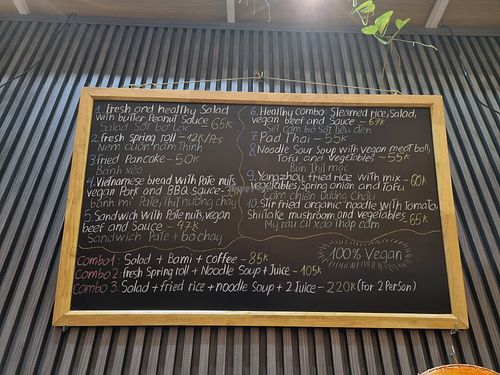 1. Fresh and healthy Salad
with butter Peanut Sauce 65K
Salad sốt bơ lạc
2. fresh Spring roll = 12K/Pes
Nem cuốn nấm Thính
3. Fried Pancake - 50K
Bánh xèo
4. Vietnamese bread with Pate nuts
vegan Pork and BBQ sauce -
bánh mì Pate, Thịt nướng chay
5. Sandwich with Pate nuts, vegan
beef and Sauce - 47K
Sandwich Pate + bò chay
6. Healthy combo: Steamed rice, Salad,
vegan beef and Sauce - 69K
7. Pad Thai - 55K
8. Noodle Sour Soup with vegan meat ball,
Tofu and vegetables - 55K
Bún Thịt mọc
9. Yangzhou fried rice with mix - 60K
vegetables, Spring onion and Tofu
Cơm chiên Dương Châu
10. Stir fried organic noodle with Tomato,
Shiitake mushroom and vegetables 65K
Mỳ rau củ xào Thập cẩm
100% Vegan
Combo 1: Salad + Bami + coffee - 85K
Combo 2: fresh Spring roll + Noodle Soup + Juice - 105K
Combo 3: Salad + fried rice + noodle Soup + 2 Juice - 220K (For 2 Person)